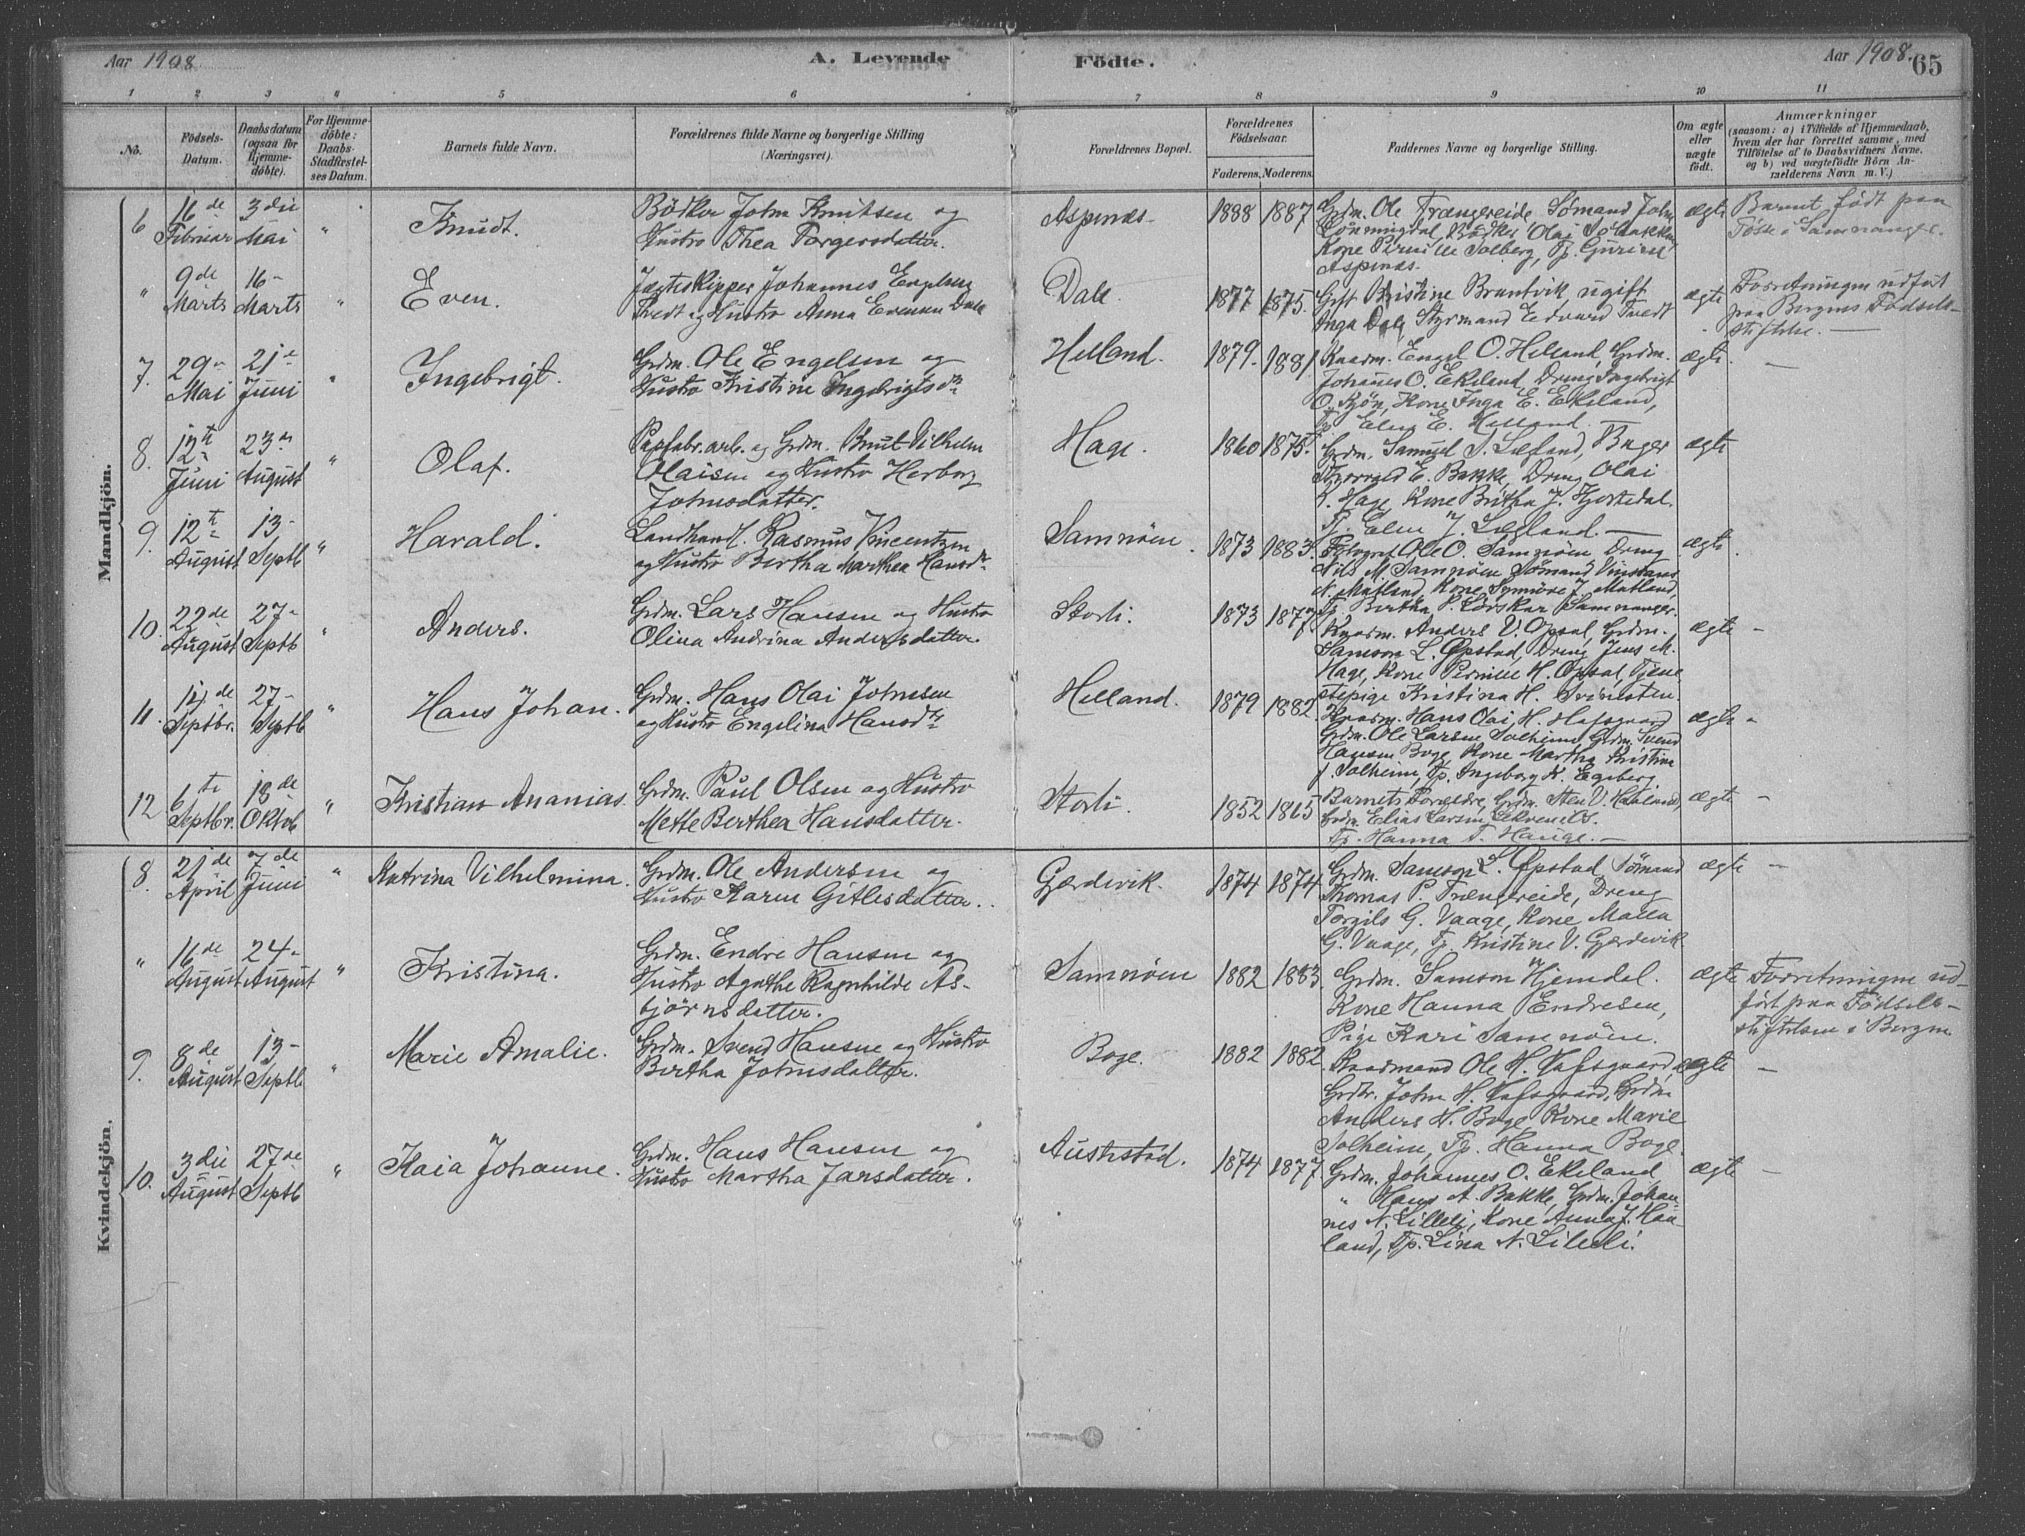 Aar 1908.
A. Levende
Födte.
Aar 1908.
65
1 2 3 4 5 6 7 8 9 10 11
No.
Födsels-
Datum.
Daabsdatum
(ogsaa for
Hjemme-
döbte).
For Hjemme-
döbte:
Daabs-
Stadfæstel-
ses Datum.
Barnets fulde Navn.
Forældrenes fulde Navne og borgerlige Stilling
(Næringsvei).
Forældrenes Bopæl.
Forældrenes
Födselsaar.
Faderens. Moderens.
Faddernes Navne og borgerlige Stilling.
Om ægte
eller
uægte
født.
Anmærkninger
(saasom: a) i Tilfælde af Hjemmedaab,
hvem der har forrettet samme, med
Tilföielse af to Daabsvidners Navne,
og b) ved uægtefödte Börn An-
mælderens Navn m. V.)
Mandkjön.
6
16de
Februar
3die
Mai
"
Knudt.
Bödker John Knutsen og
Hustro Thea Torgersdatter.
Aspenæs
1888 1887
Grdm. Ole Trængereide Sömand John
Lönningdal, Bödker Olai S. Bakke,
Kone Pernille Solberg, Tp. Gurine
Aspenæs.
ægte
Barnet født paa
Tösse i Samnanger.
"
9de
Marts
16-
Marts
"
Even.
Jægteskipper Johannes Engelsen
Tvedt og Hustro Anna Evensen Dale
Dale.
1877 1875.
Gift Kristine Bruntvik, ugift
Inga Dale Styrmand Edvard Tvedt
ægte
Forretningen udført
paa Bergens Födsels-
stiftelse.
7.
29-
Mai
21-
Juni
"
Ingebrigt.
Grdm. Ole Engelsen og
Hustro Kristine Ingebrigtsdtr.
Helland.
1879. 1881
Kaarm. Engel O. Helland, Grdm.
Johannes O. Ekeland, Dreng Ingebrigt
O. Kjön, Kone Inga E. Ekeland,
Tp. Elen E. Helland.
ægte
8.
12te
Juni
23-
August
"
Olaf.
Papfabr.arb. og Grdm. Knut Vilhelm
Olaisen og Hustro Herborg
Johnsdatter.
Hage.
1860 1875.
Grdm. Samuel J. Lægland, Bager
E. Bakke, Dreng Olai
K. Hage, Kone Britha J. Hjortedal.
Tp. Elen J. Lægland.
ægte
9.
12te
August
13-
Septb
"
Harald.
Landhandl. Rasmus Vincentsen
og Hustro Bertha Marthea Hansdtr.
Samnöen.
1873 1883.
Fotograf Ole O. Samnöen, Dreng
Nils M. Samnöen Sömand Vinsrans
N. Matland, Kone Synnöve J. Matland,
Tp. Bertha P. Lörskar Samnanger.
ægte.
10.
22de
August
27-
Septb
"
Anders.
Grdm. Lars Hansen og Hustro
Olina Andrina Andersdatter.
Storli.
1873 1877
Kaarm. Anders V. Opsal, Grdm.
Samson L. Øpstad, Dreng Jens M.
Hage, Kone Pernille H. Opsal, Tjene
stepige Kristina H. Svinesten.
ægte -
11.
14de
Septbr.
27-
Septb
"
Hans Johan.
Grdm. Hans Olai Johnesen
og Hustro Engelina Hansdtr
Helland.
1879 1882
Kaarm. Hans Olai H. Hafsgaard
Grdm. Ole Larsen Solheim, Grdm. Svend
Hansen Boge, Kone Martha Kristine
J. Solheim, Tp. Ingeborg K. Egeberg
ægte -
12
6te
Septbr.
18de
Oktob
"
Kristian Ananias.
Grdm. Paul Olsen og Hustro
Mette Berthea Hansdatter.
Storli.
1852 1865
Barnets Forældre, Grdm. Sten V. Haaland,
Grdm. Elias Larsen Lekvenæs.
Tp. Hanna T. Hauge.
ægte -
Kvindekjön.
8.
21de
April
7de
Juni
"
Katrina Vilhelmina.
Grdm. Ole Andersen og
Hustro Karen Gitlesdatter.
Gjerdevik.
1874 1874
Grdm. Samson L. Øpstad, Sömand
Thomas P. Trængereide, Dreng
Torgils G. Vaage, Kone Malla
G. Vaage, Tp. Kristine V. Gjerdevik
ægte -
"
16de
August
24-
August
"
Kristina.
Grdm. Endre Hansen og
Hustro Agathe Ragnhilde As-
björnsdatter.
Samnöen
1882 1883
Grdm. Samson Hjemdal.
Kone Hanna Endresen,
Pige Kari Samnöen.
ægte
Forretningen ud-
ført paa Födsels-
stiftelsen i Bergen
9.
8de
August
13-
Septb
"
Marie Amalie.
Grdm. Svend Hansen og Hustro
Bertha Johnsdatter.
Boge.
1882 1882
Kaarmand Ole H. Hafsgaard,
Grdbr. John H. Hafsgaard, Grdm
Anders H. Boge, Kone Marie
Solheim, Tp. Hanna Boge.
ægte -
10.
3die
August
27de
Septb
"
Kaia Johanne.
Grdm. Hans Hansen og
Hustro Martha Jansdatter.
Austestad.
1874 1877
Grdm. Johannes O. Ekeland
" Hans A. Bakke, Grdm. Johan-
nes N. Lilleli, Kone Anna J. Haa-
land, Tp. Lina N. Lilleli.
ægte -